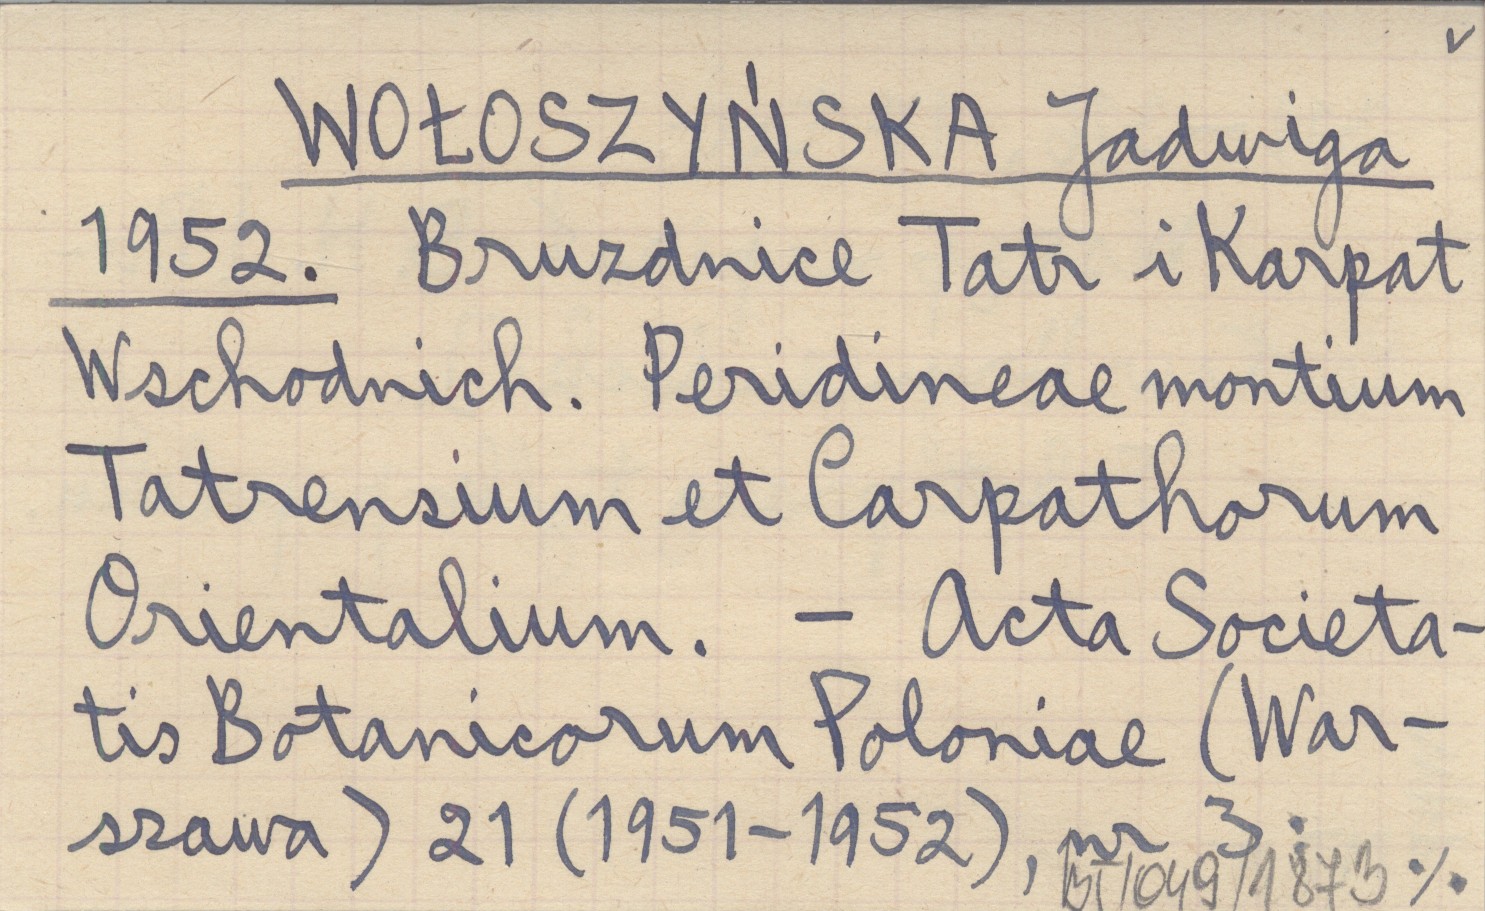 v
WOŁOSZYŃSKA Jadwiga
1952. Bruzdnice Tatr i Karpat
Wschodnich. Peridineae montium
Tatrensium et Carpathorum
Orientalium. – Acta Societa-
tis Botanicorum Poloniae (War-
szawa) 21 (1951-1952), nr 3:
BT/049/1873 ·/.